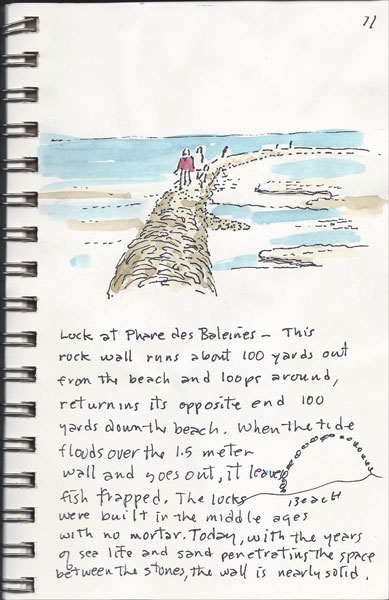 71
Lock at Phare des Baleines - This
rock wall runs about 100 yards out
from the beach and loops around,
returning its opposite end 100
yards down the beach. When the tide
floods over the 1.5 meter
wall and goes out, it leaves
fish trapped. The locks
Beach
were built in the middle ages
with no mortar. Today, with the years
of sea life and sand penetrating the space
between the stones, the wall is nearly solid.